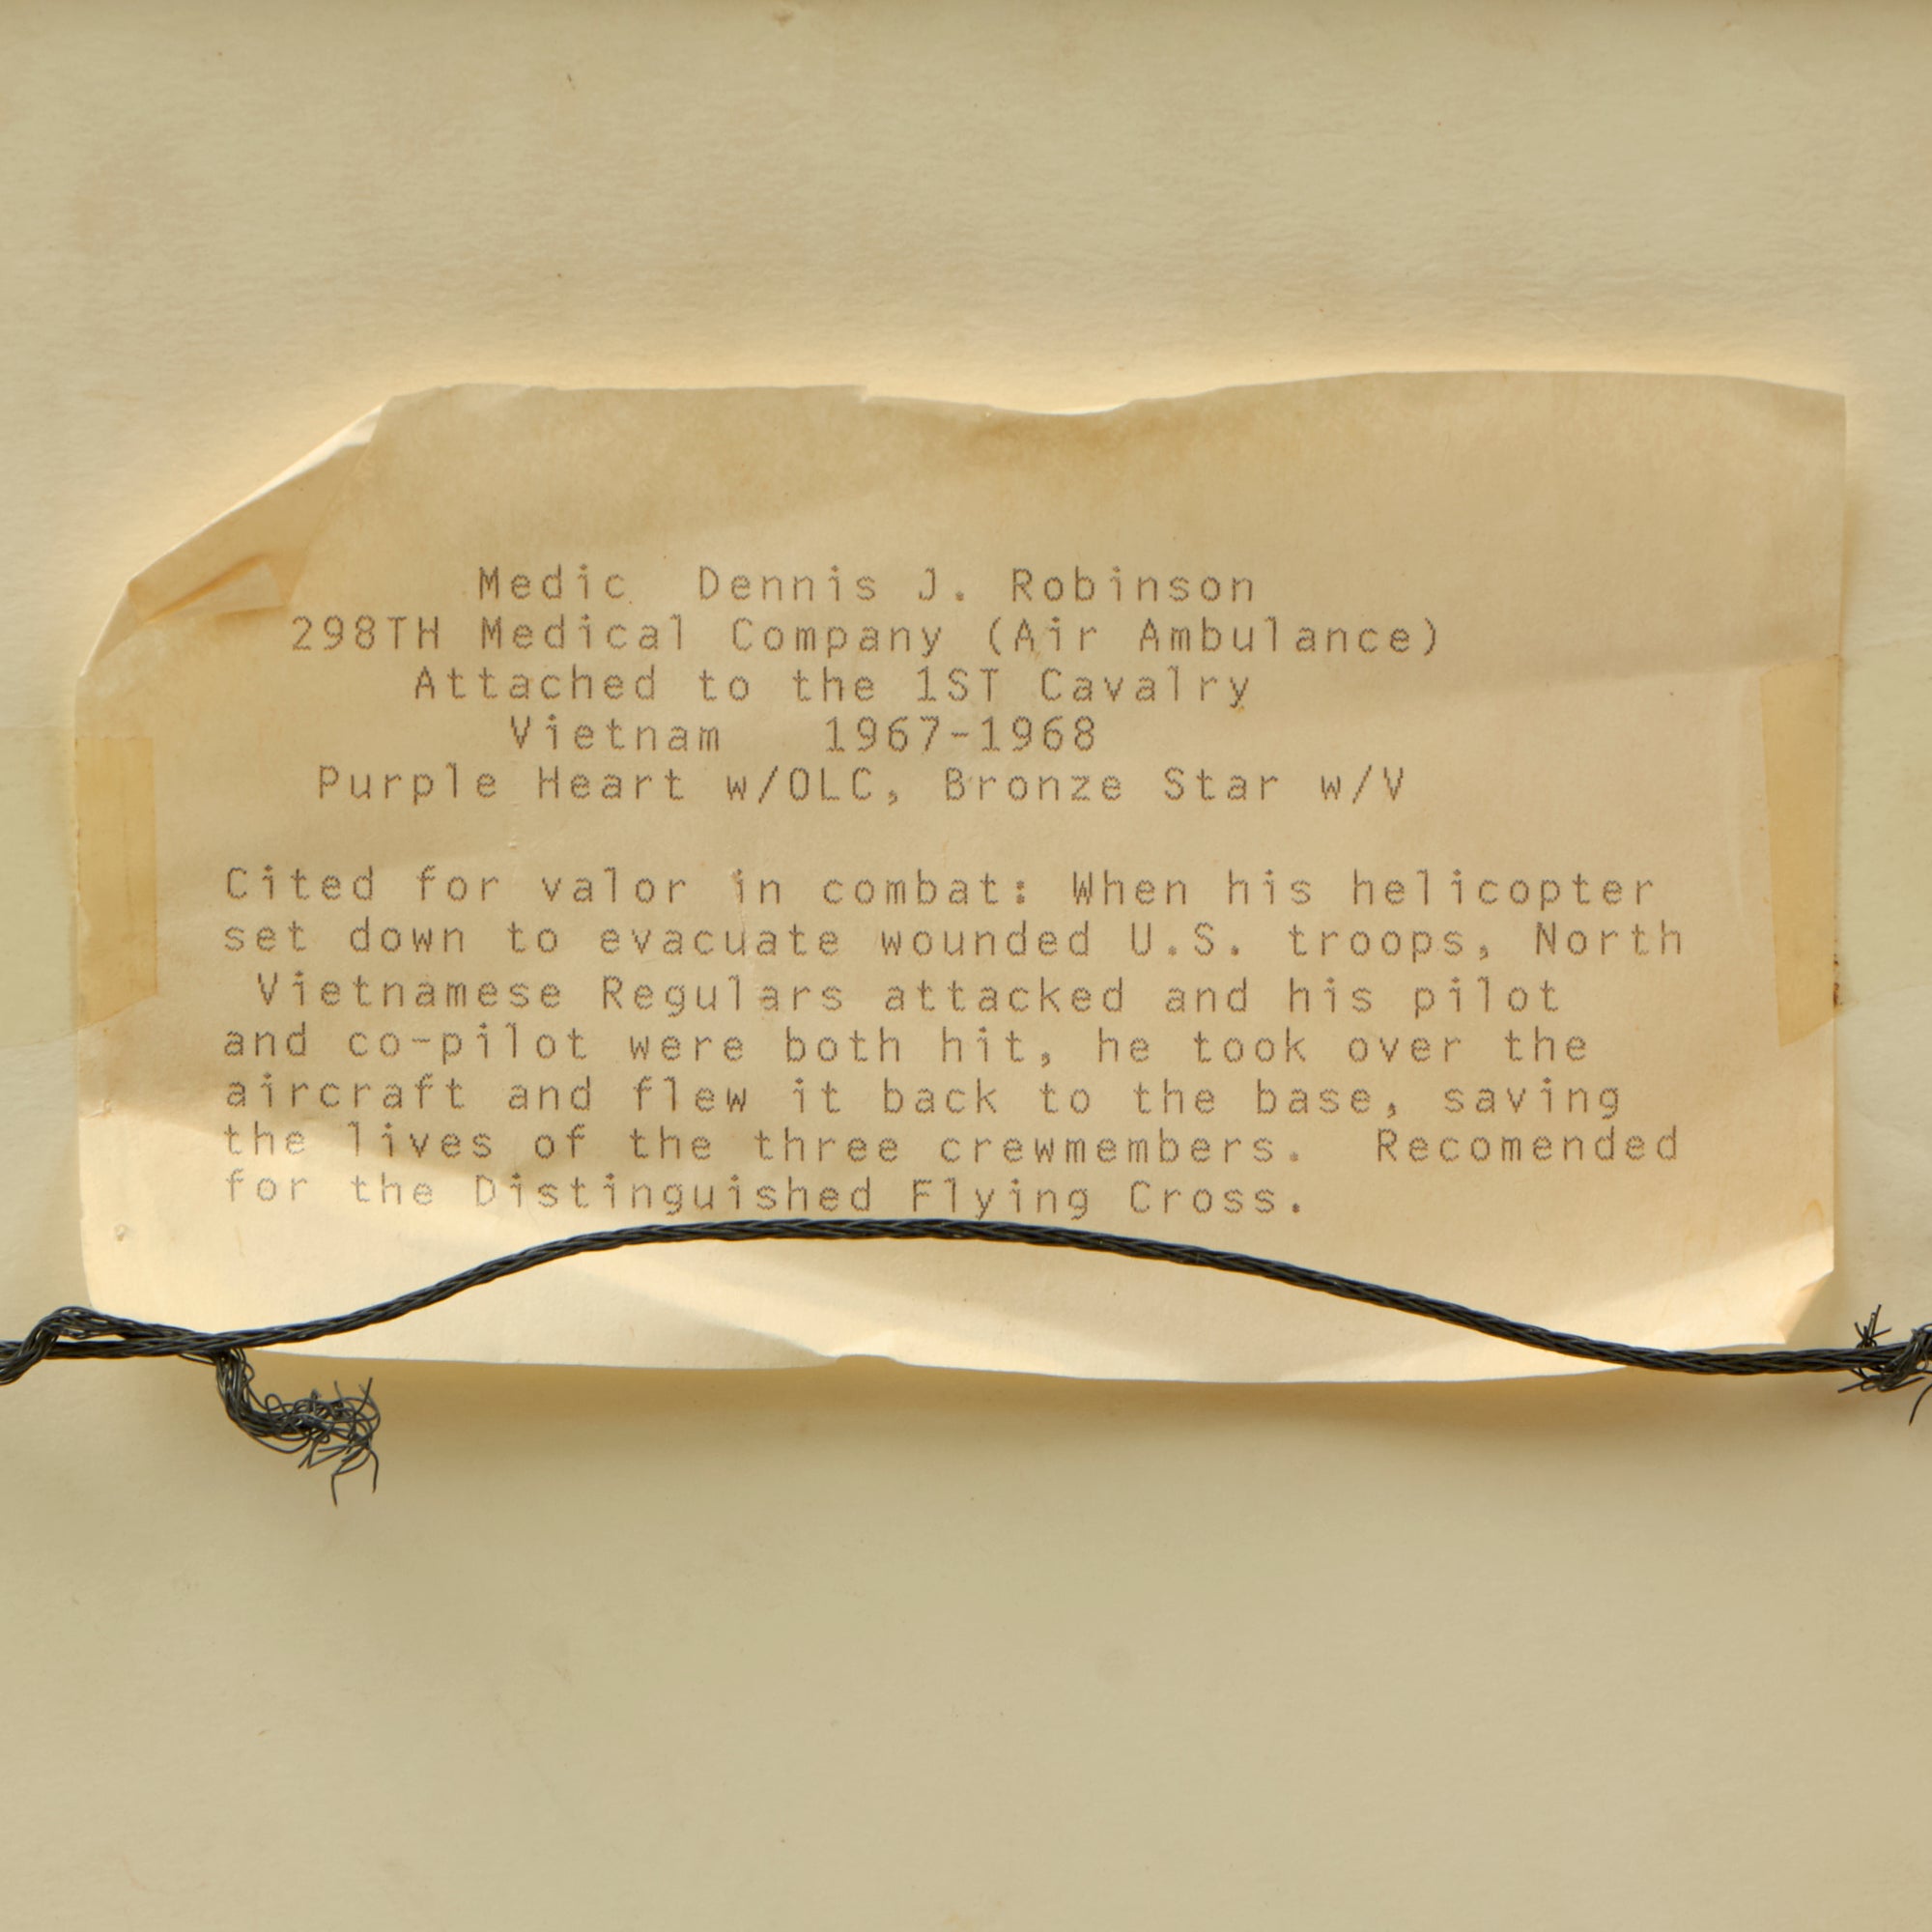 Medic Dennis J. Robinson
298TH Medical Company (Air Ambulance)
Attached to the 1ST Cavalry
Vietnam 1967-1968
Purple Heart w/OLC, Bronze Star w/V
Cited for valor in combat: When his helicopter
set down to evacuate wounded U.S. troops, North
Vietnamese Regulars attacked and his pilot
and co-pilot were both hit, he took over the
aircraft and flew it back to the base, saving
the lives of the three crewmembers. Recomended
for the Distinguished Flying Cross.